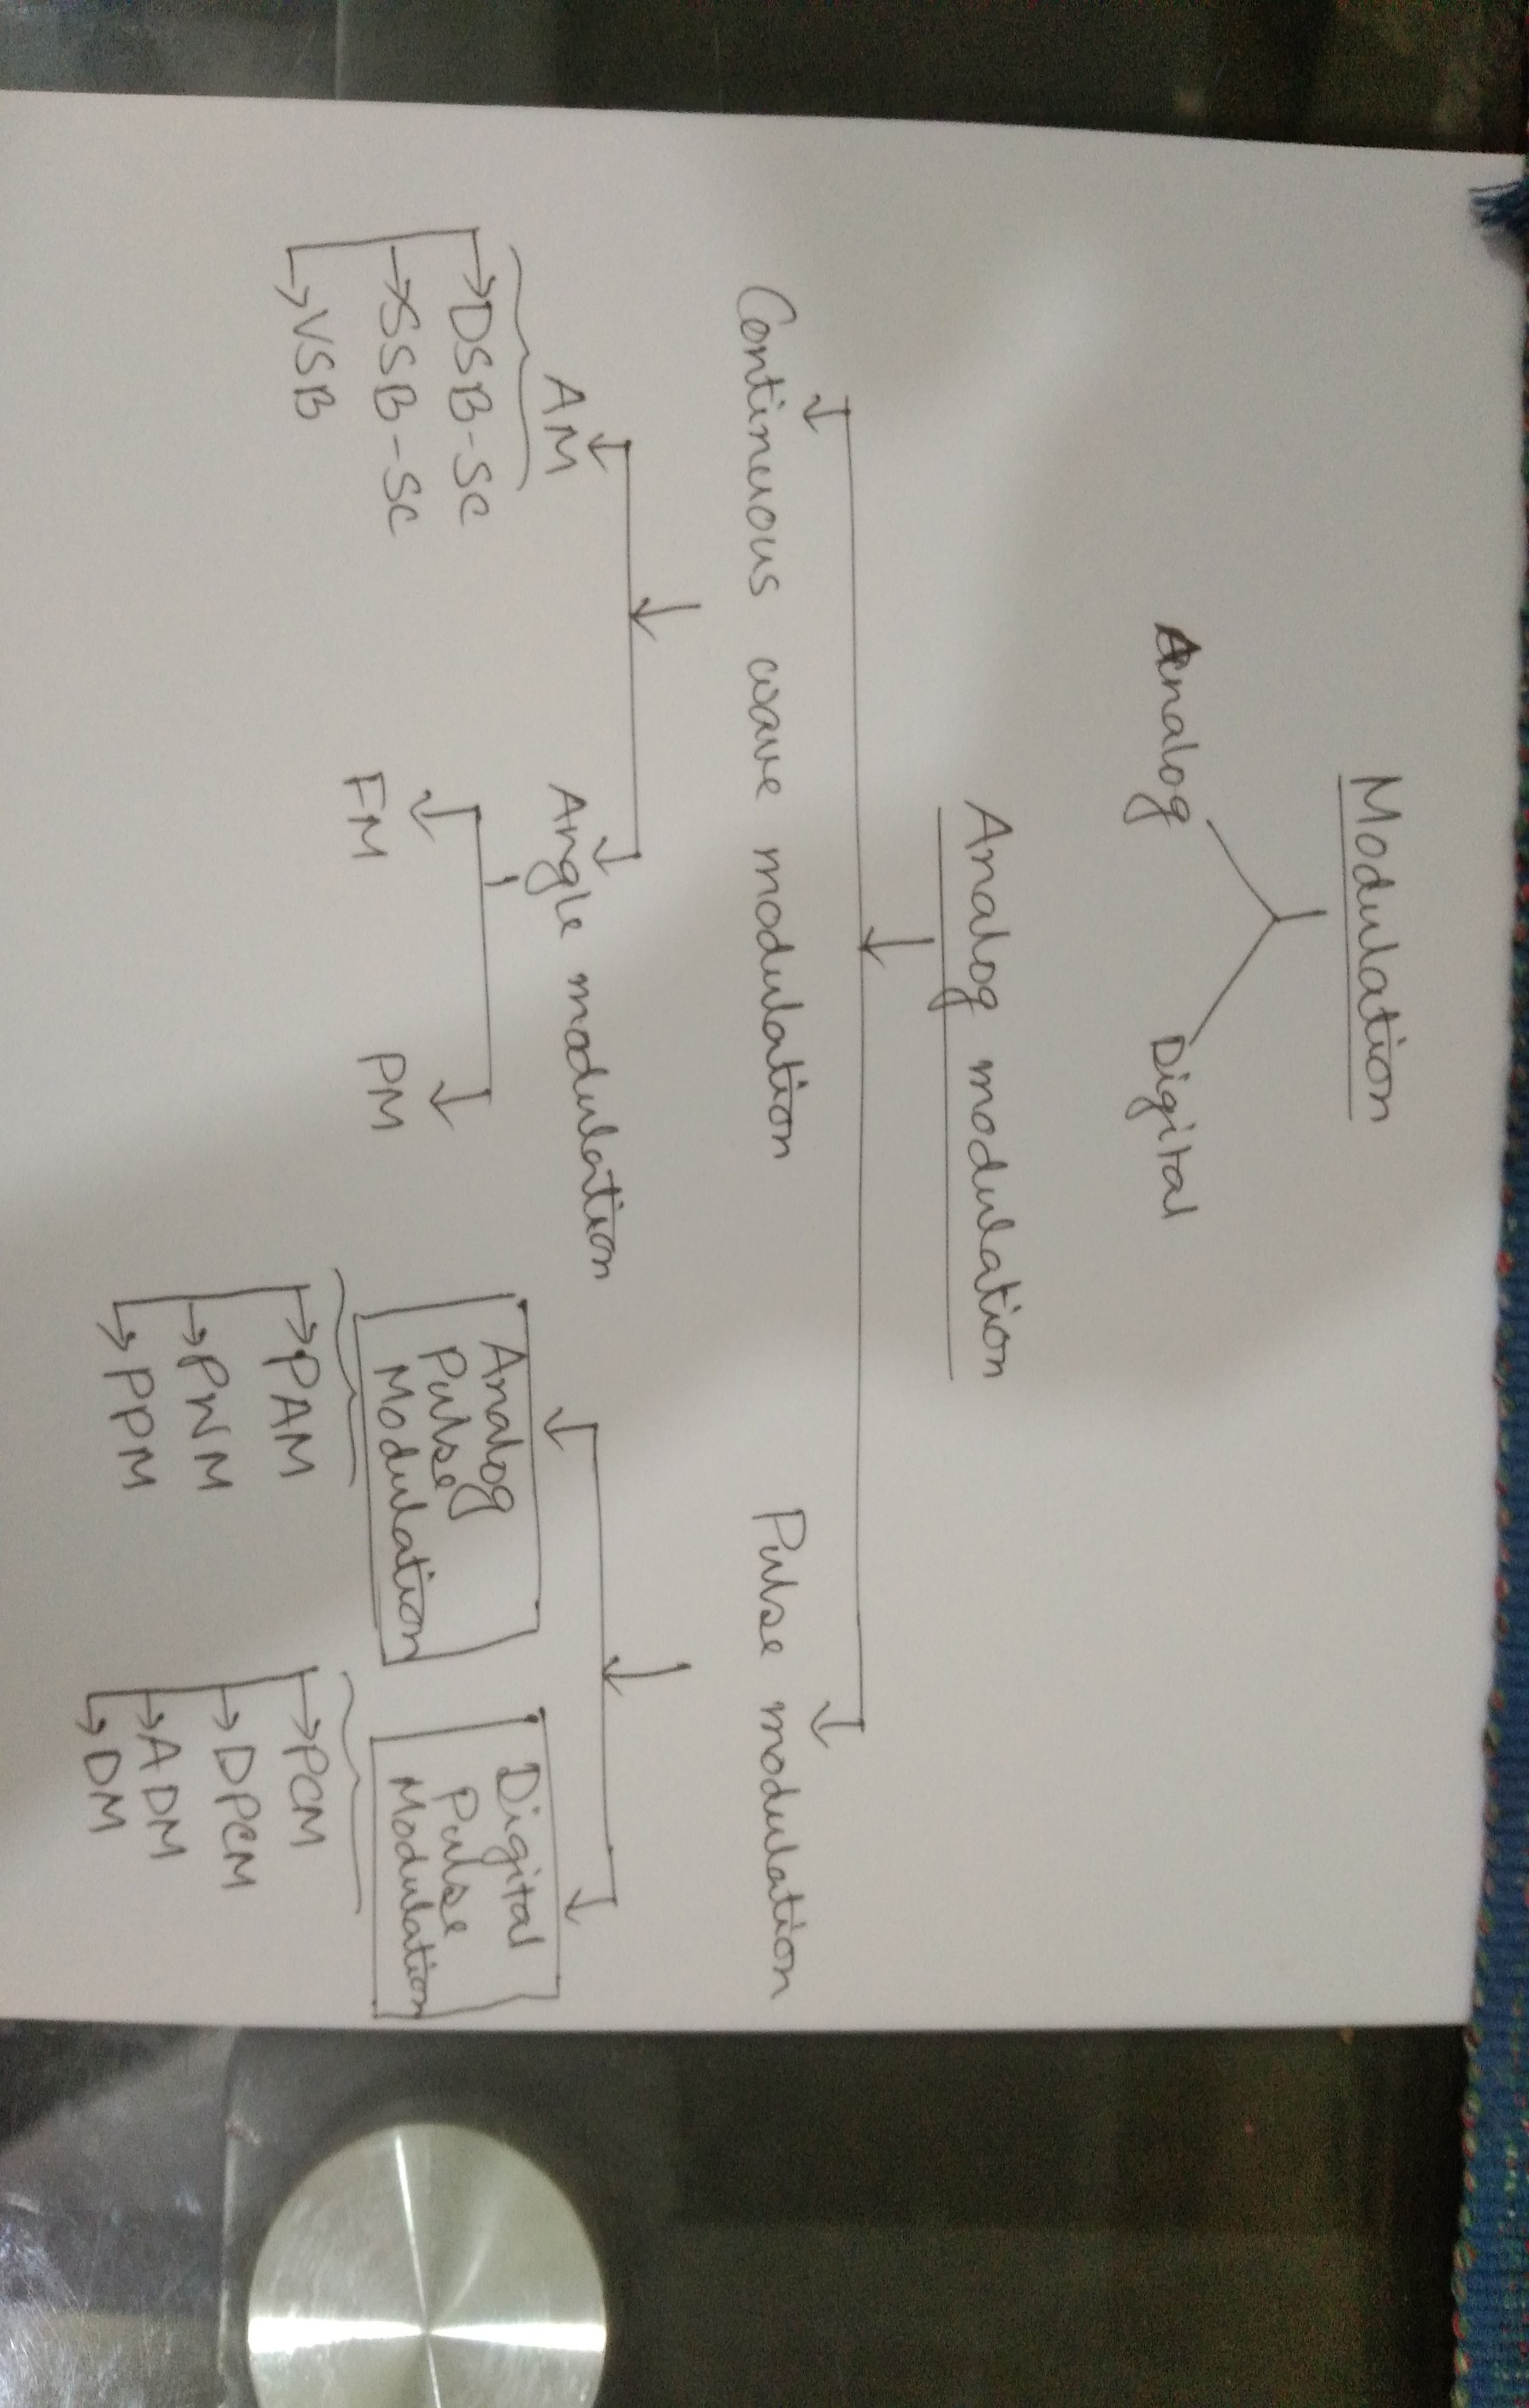 Modulation
Analog Digital
Analog modulation
Continuous wave modulation Pulse modulation
AM Angle modulation
DSB-SC
SSB-SC
VSB
FM PM
Analog
Pulse
Modulation
PAM
PWM
PPM
Digital
Pulse
Modulation
PCM
DPCM
ADM
DM